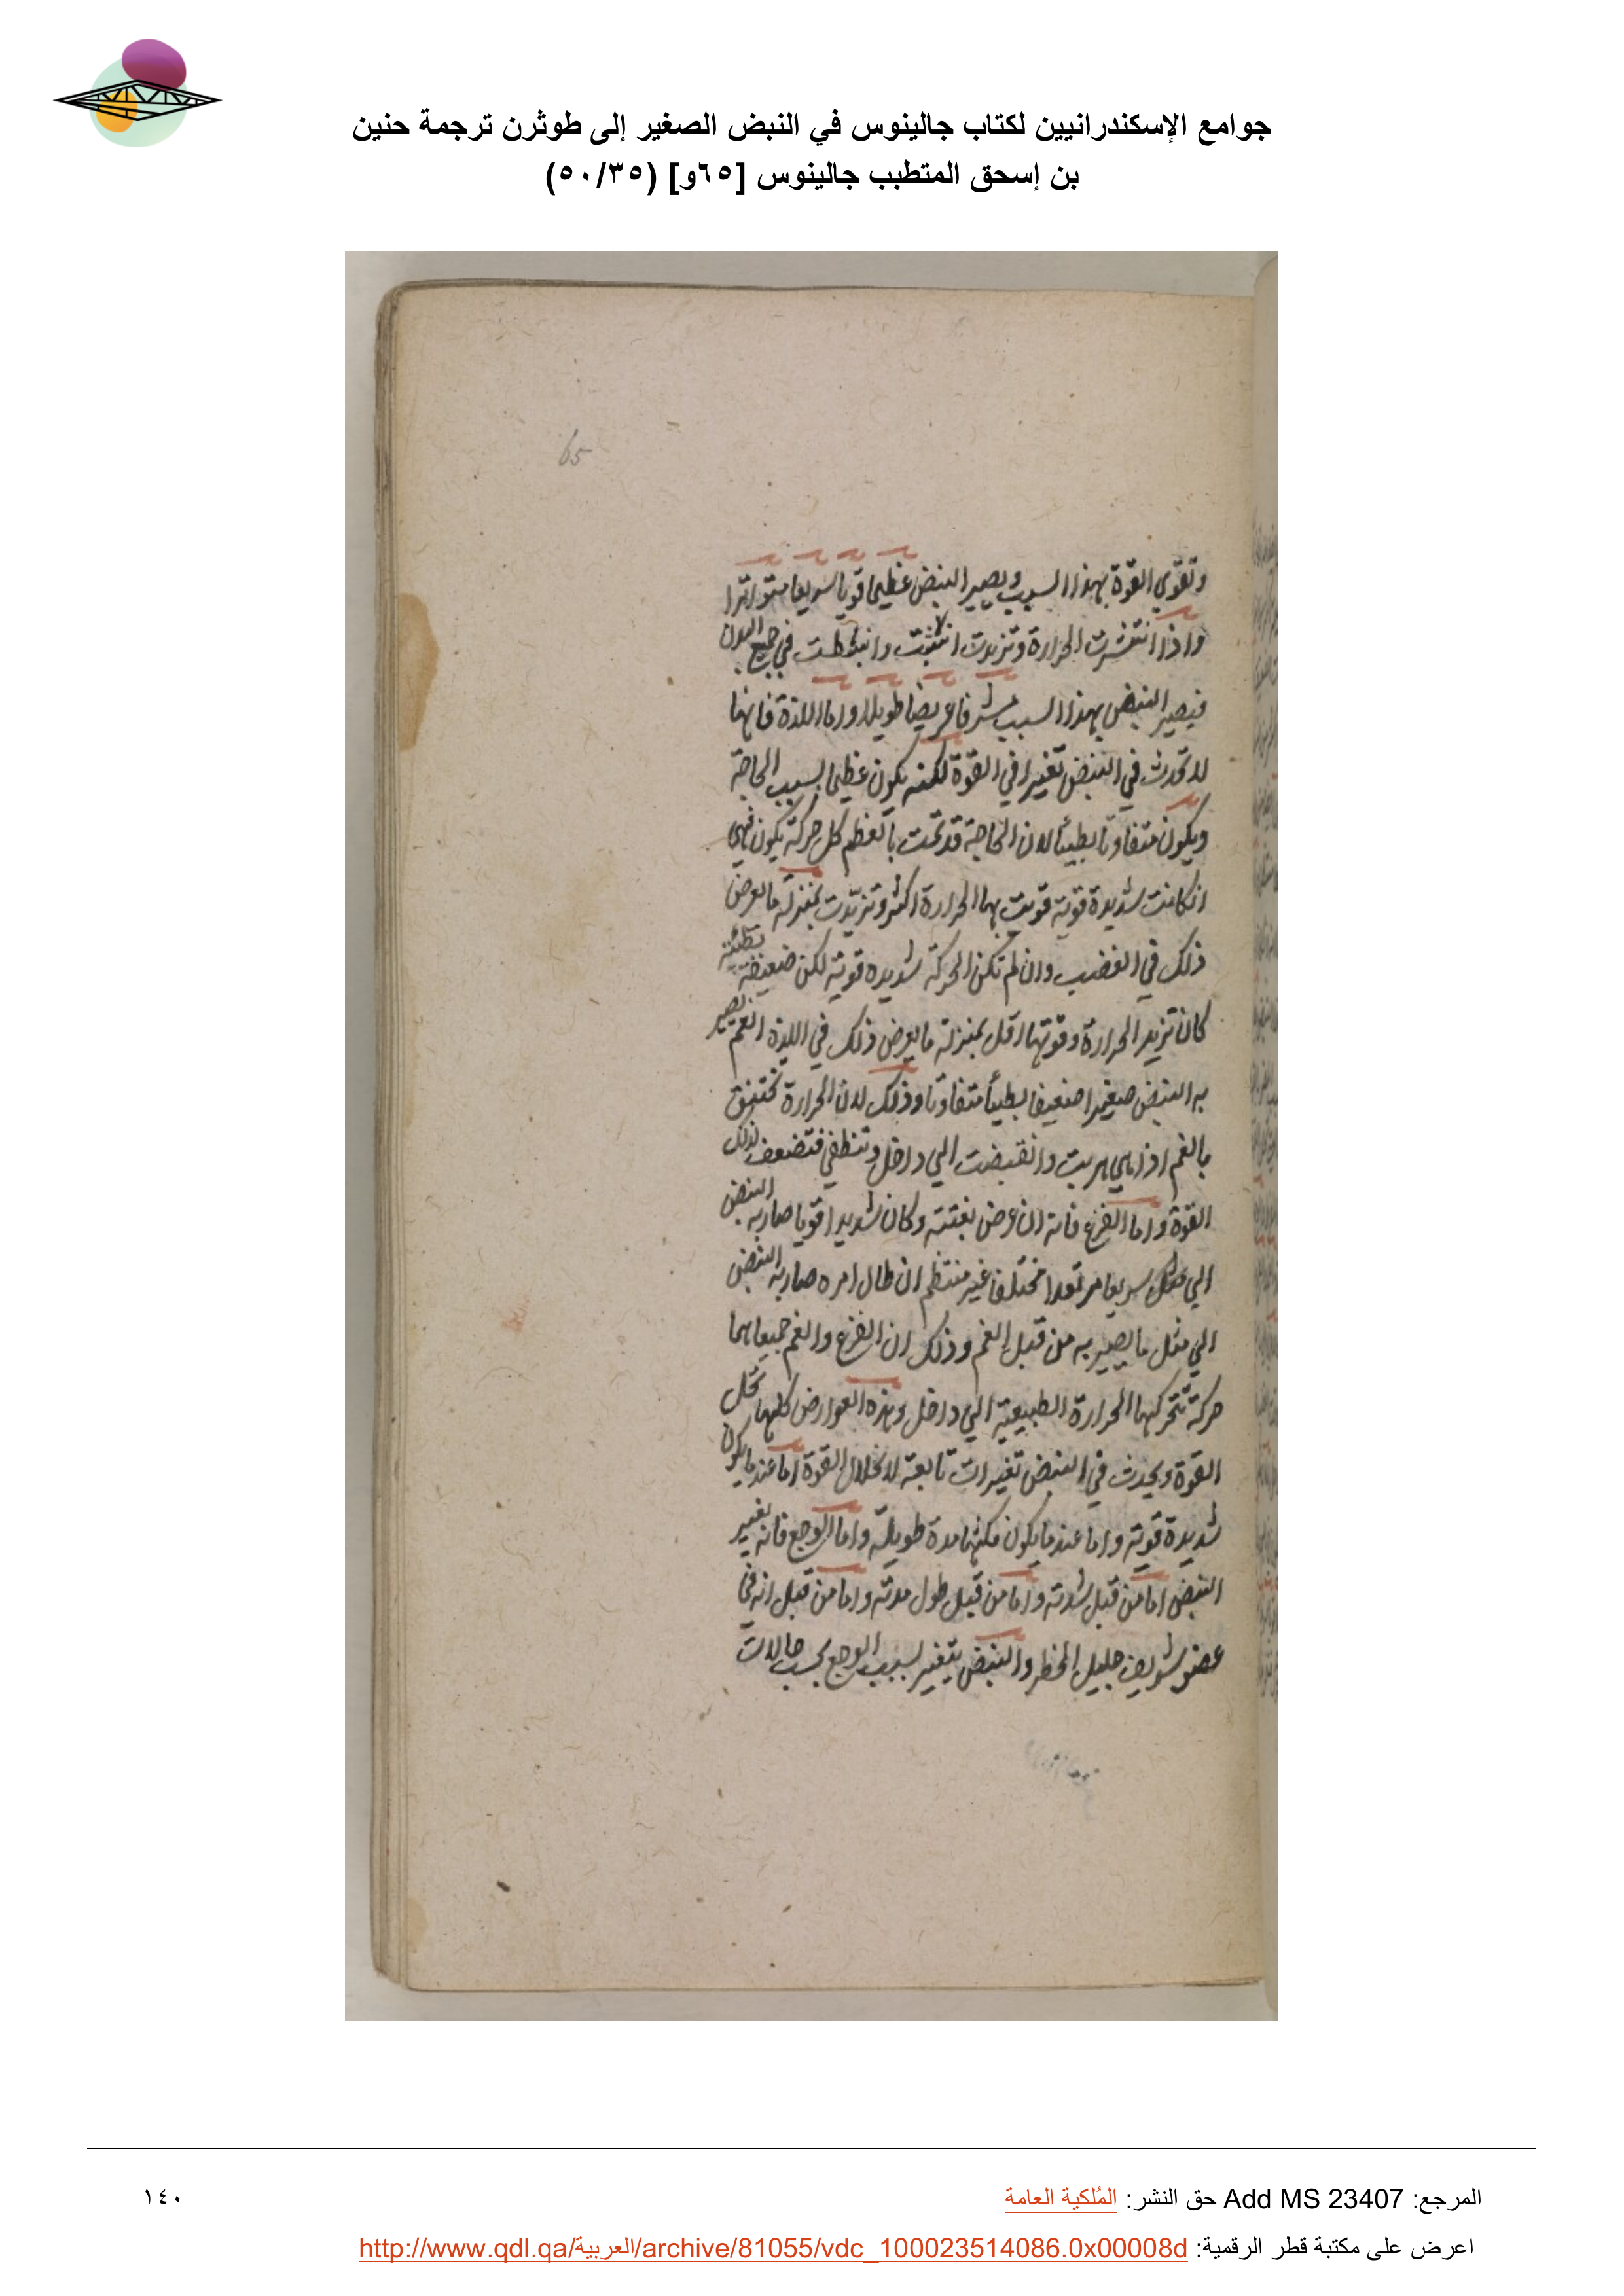 جوامع الإسكندرانيين لكتاب جالينوس في النبض الصغير إلى طوثرن ترجمة حنين
بن إسحق المتطبب جالينوس [٦٥و] (٥٠/٣٥)
65
وتقوي القوة بهذا السبب ويصير النبض عظيما قويا سريعا متواترا
واذا انتشرت الحرارة وتزيدت وانبسطت في جميع البدن
فيصير النبض بهذا السبب مشرفا عريضا طويلا واما اللذة فانها
لا تحدث في النبض تغييرا في القوة لكنه يكون عظيما بسبب الحاجة
ويكون متفاوتا بطيئا لان الحاجة قد تمت بالعظم كل حركة يكون فهي
ان كانت شديدة قوية قويت بها الحرارة اكثر وتزيدت بمنزلة ما يعرض
ذلك في الغضب وان لم تكن الحركة شديده قوية لكن ضعيفة بطيئة
كان تزيد الحرارة وقوتها اقل بمنزلة ما يعرض ذلك في اللذة الغم يصير
به النبض صغيرا ضعيفا بطيئا متفاوتا وذلك لان الحرارة تختنق
بالغم اذا هي هربت وانقبضت الي داخل وتنطفي فتضعف لذلك
القوة واما الفزع فانه ان عرض بغتته وكان شديدا قويا صار به النبض
الي سريعا مرتعدا مختلفا غير منتظم ان طال امره صار به النبض
الي مثل ما يصير به من قبل الغم وذلك ان الفزع والغم جميعا هما
حركة تتحركها الحرارة الطبيعية الي داخل وهذه العوارض كلها تحل
القوة ويحدث في النبض تغييرات تابعة لانحلال القوة اما عند ما يكون
شديدة قوية واما عند ما يكون مكثها مدة طويلة واما الوجع فانه يغير
النبض اما من قبل شدته واما من قبل طول مدته واما من قبل انه في
عضو شريف جليل الخطر والنبض يتغير بسبب الوجع بحسب حالات
المرجع: Add MS 23407 حق النشر: المُلكية العامة
١٤٠
اعرض على مكتبة قطر الرقمية: http://www.qdl.qa/العربية/archive/81055/vdc_100023514086.0x00008d